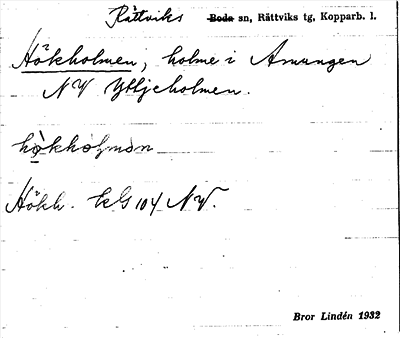 Rättviks Boda sn, Rättviks tg, Kopparb. l.
Hökholmen, holme i Amungen
NV Yttjeholmen.
hökholmən
Hökh. kG 104 NV.
Bror Lindén 1932